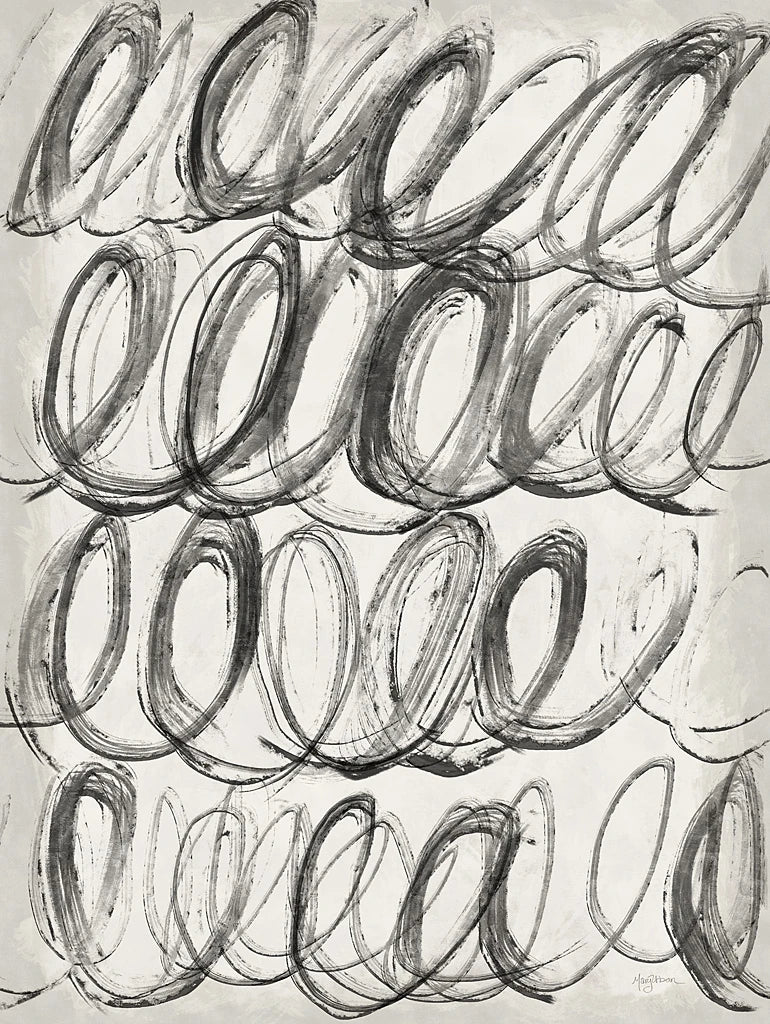 Mary Urban